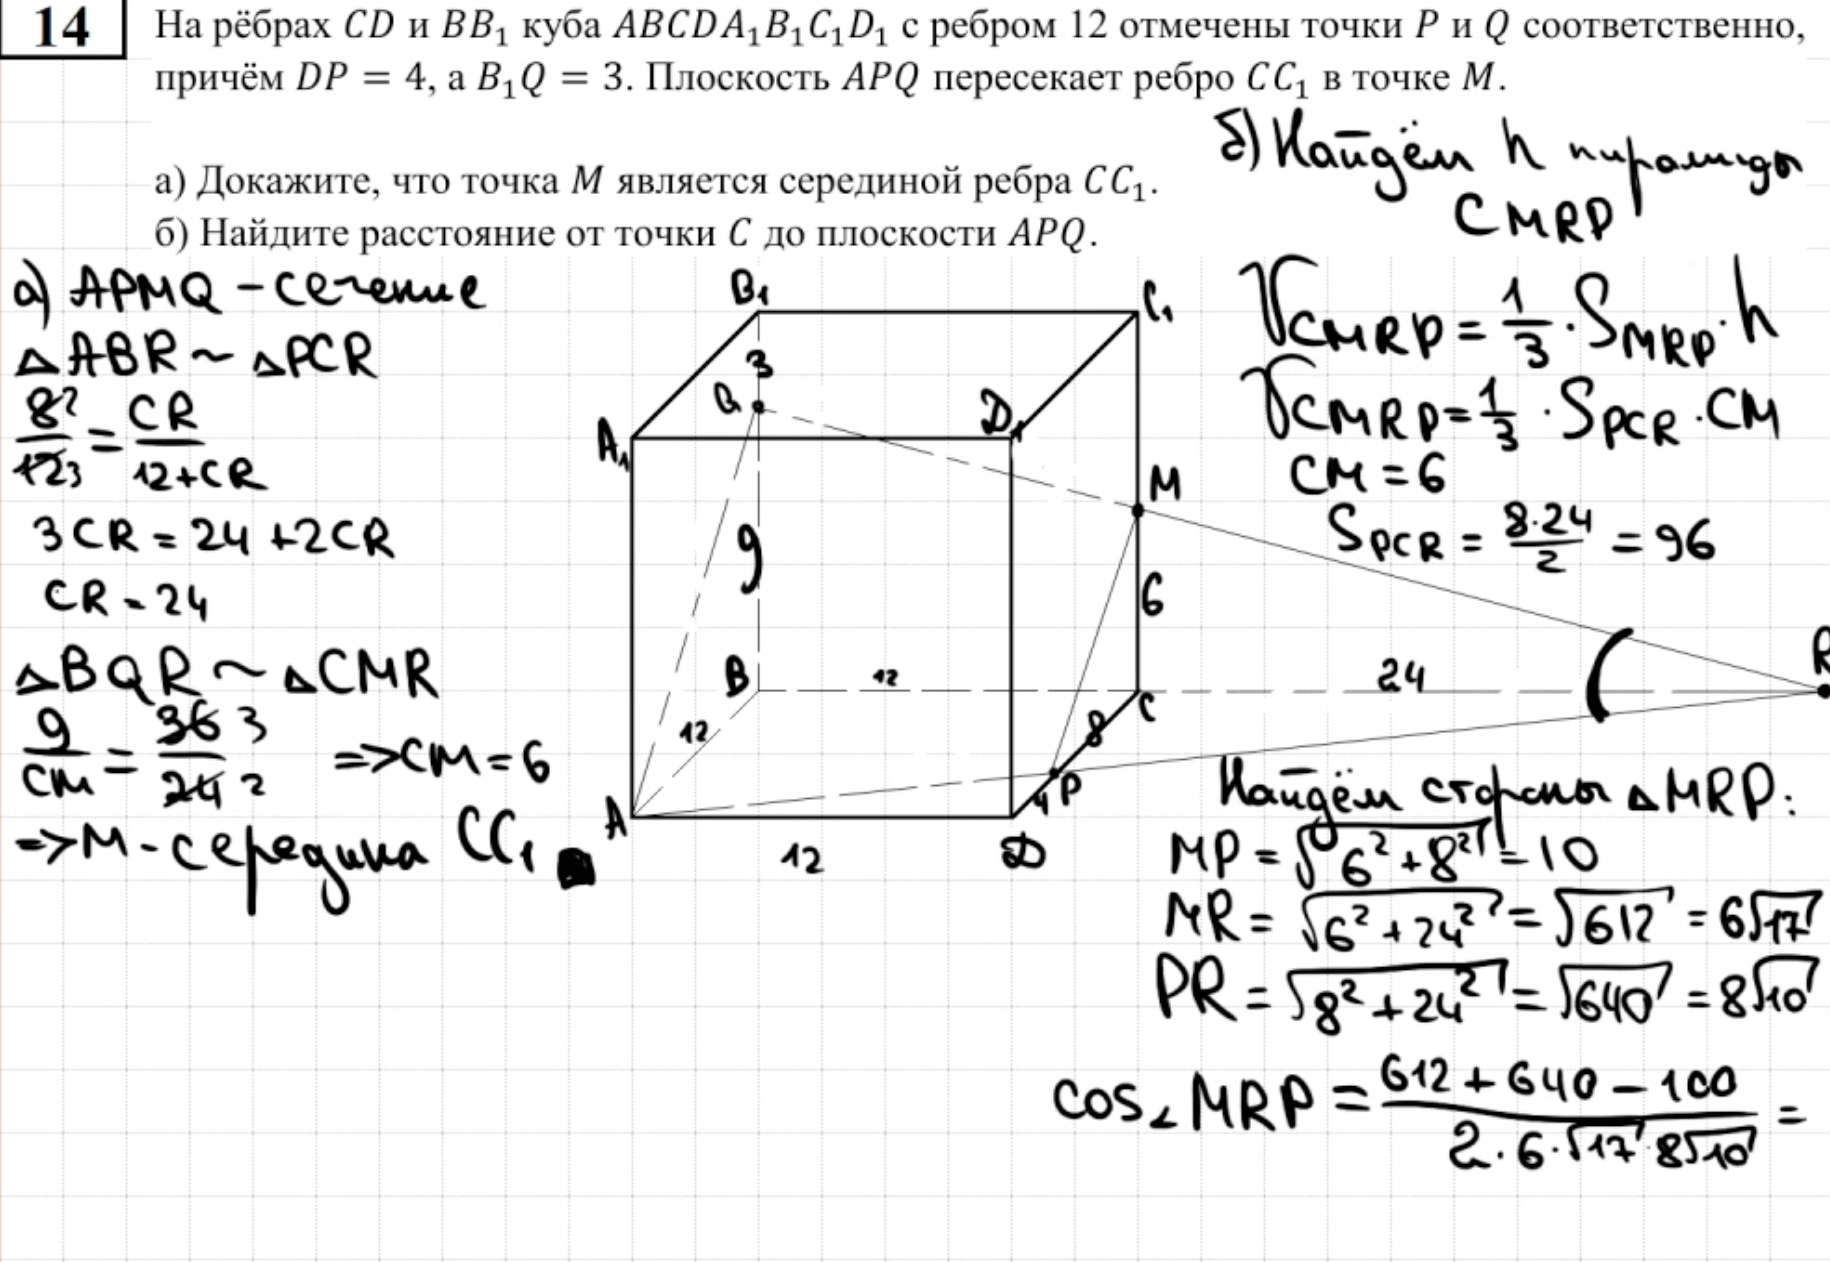 14
На рёбрах CD и BB₁ куба ABCDA₁B₁C₁D₁ с ребром 12 отмечены точки P и Q соответственно,
причём DP = 4, а B₁Q = 3. Плоскость APQ пересекает ребро CC₁ в точке M.
а) Докажите, что точка M является серединой ребра CC₁.
б) Найдите расстояние от точки C до плоскости APQ.
а) APMQ – сечение
△ABR ~ △PCR
8 2 / 12 3 = CR / 12+CR
3CR = 24 + 2CR
CR = 24
△BQR ~ △CMR
9 / CM = 36 3 / 24 2 => CM = 6
=> M - середина CC₁
B₁
C₁
3
Q
D₁
A₁
M
9
6
B
12
C
24
R
12
8
P
4
A
12
D
б) Найдём h пирамиды
CMRP
V CMRP = 1/3 · S MRP · h
V CMRP = 1/3 · S PCR · CM
CM = 6
S PCR = 8·24 / 2 = 96
Найдём стороны △MRP:
MP = √(6² + 8²) = 10
MR = √(6² + 24²) = √612 = 6√17
PR = √(8² + 24²) = √640 = 8√10
cos∠MRP = 612 + 640 − 100 / 2·6·√17·8√10 =